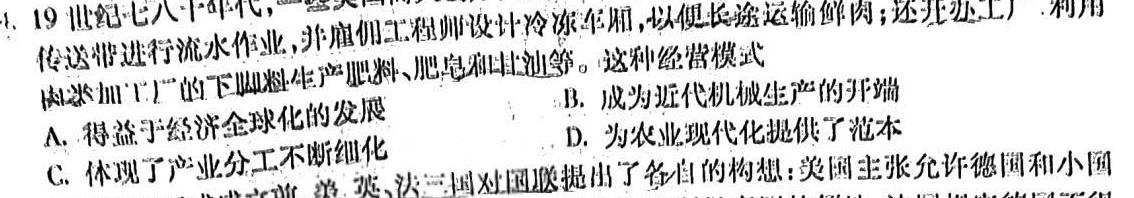 19世纪七八十年代,一些美国
传送带进行流水作业,并雇佣工程师设计冷冻车厢,以便长途运输鲜肉;还开办工厂 利用
肉类加工厂的下脚料生产肥料、肥皂和甘油等。这种经营模式
A. 得益于经济全球化的发展
B. 成为近代机械生产的开端
C. 体现了产业分工不断细化
D. 为农业现代化提供了范本
美、英、法三国对国联提出了各自的构想:美国主张允许德国和小国